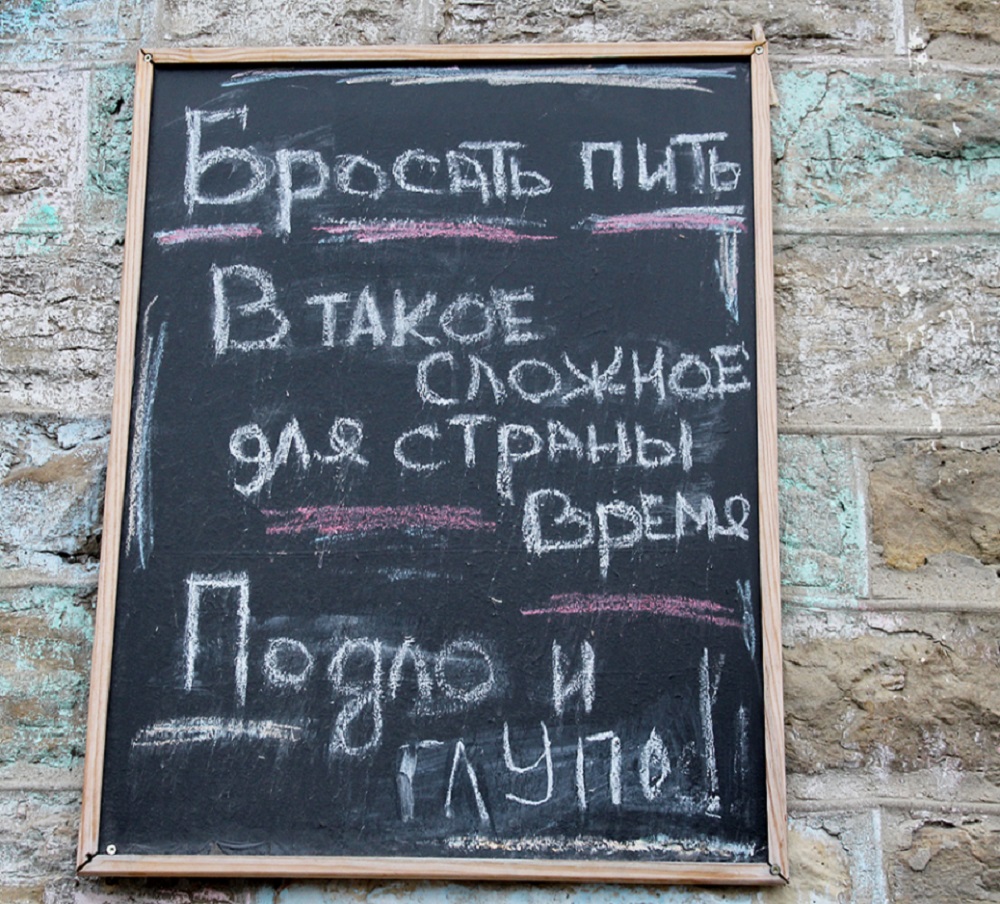 Бросать пить
В ТАКОЕ
СЛОЖНОЕ
для СТРАНЫ
ВРЕМЯ
Подло и
глупо!